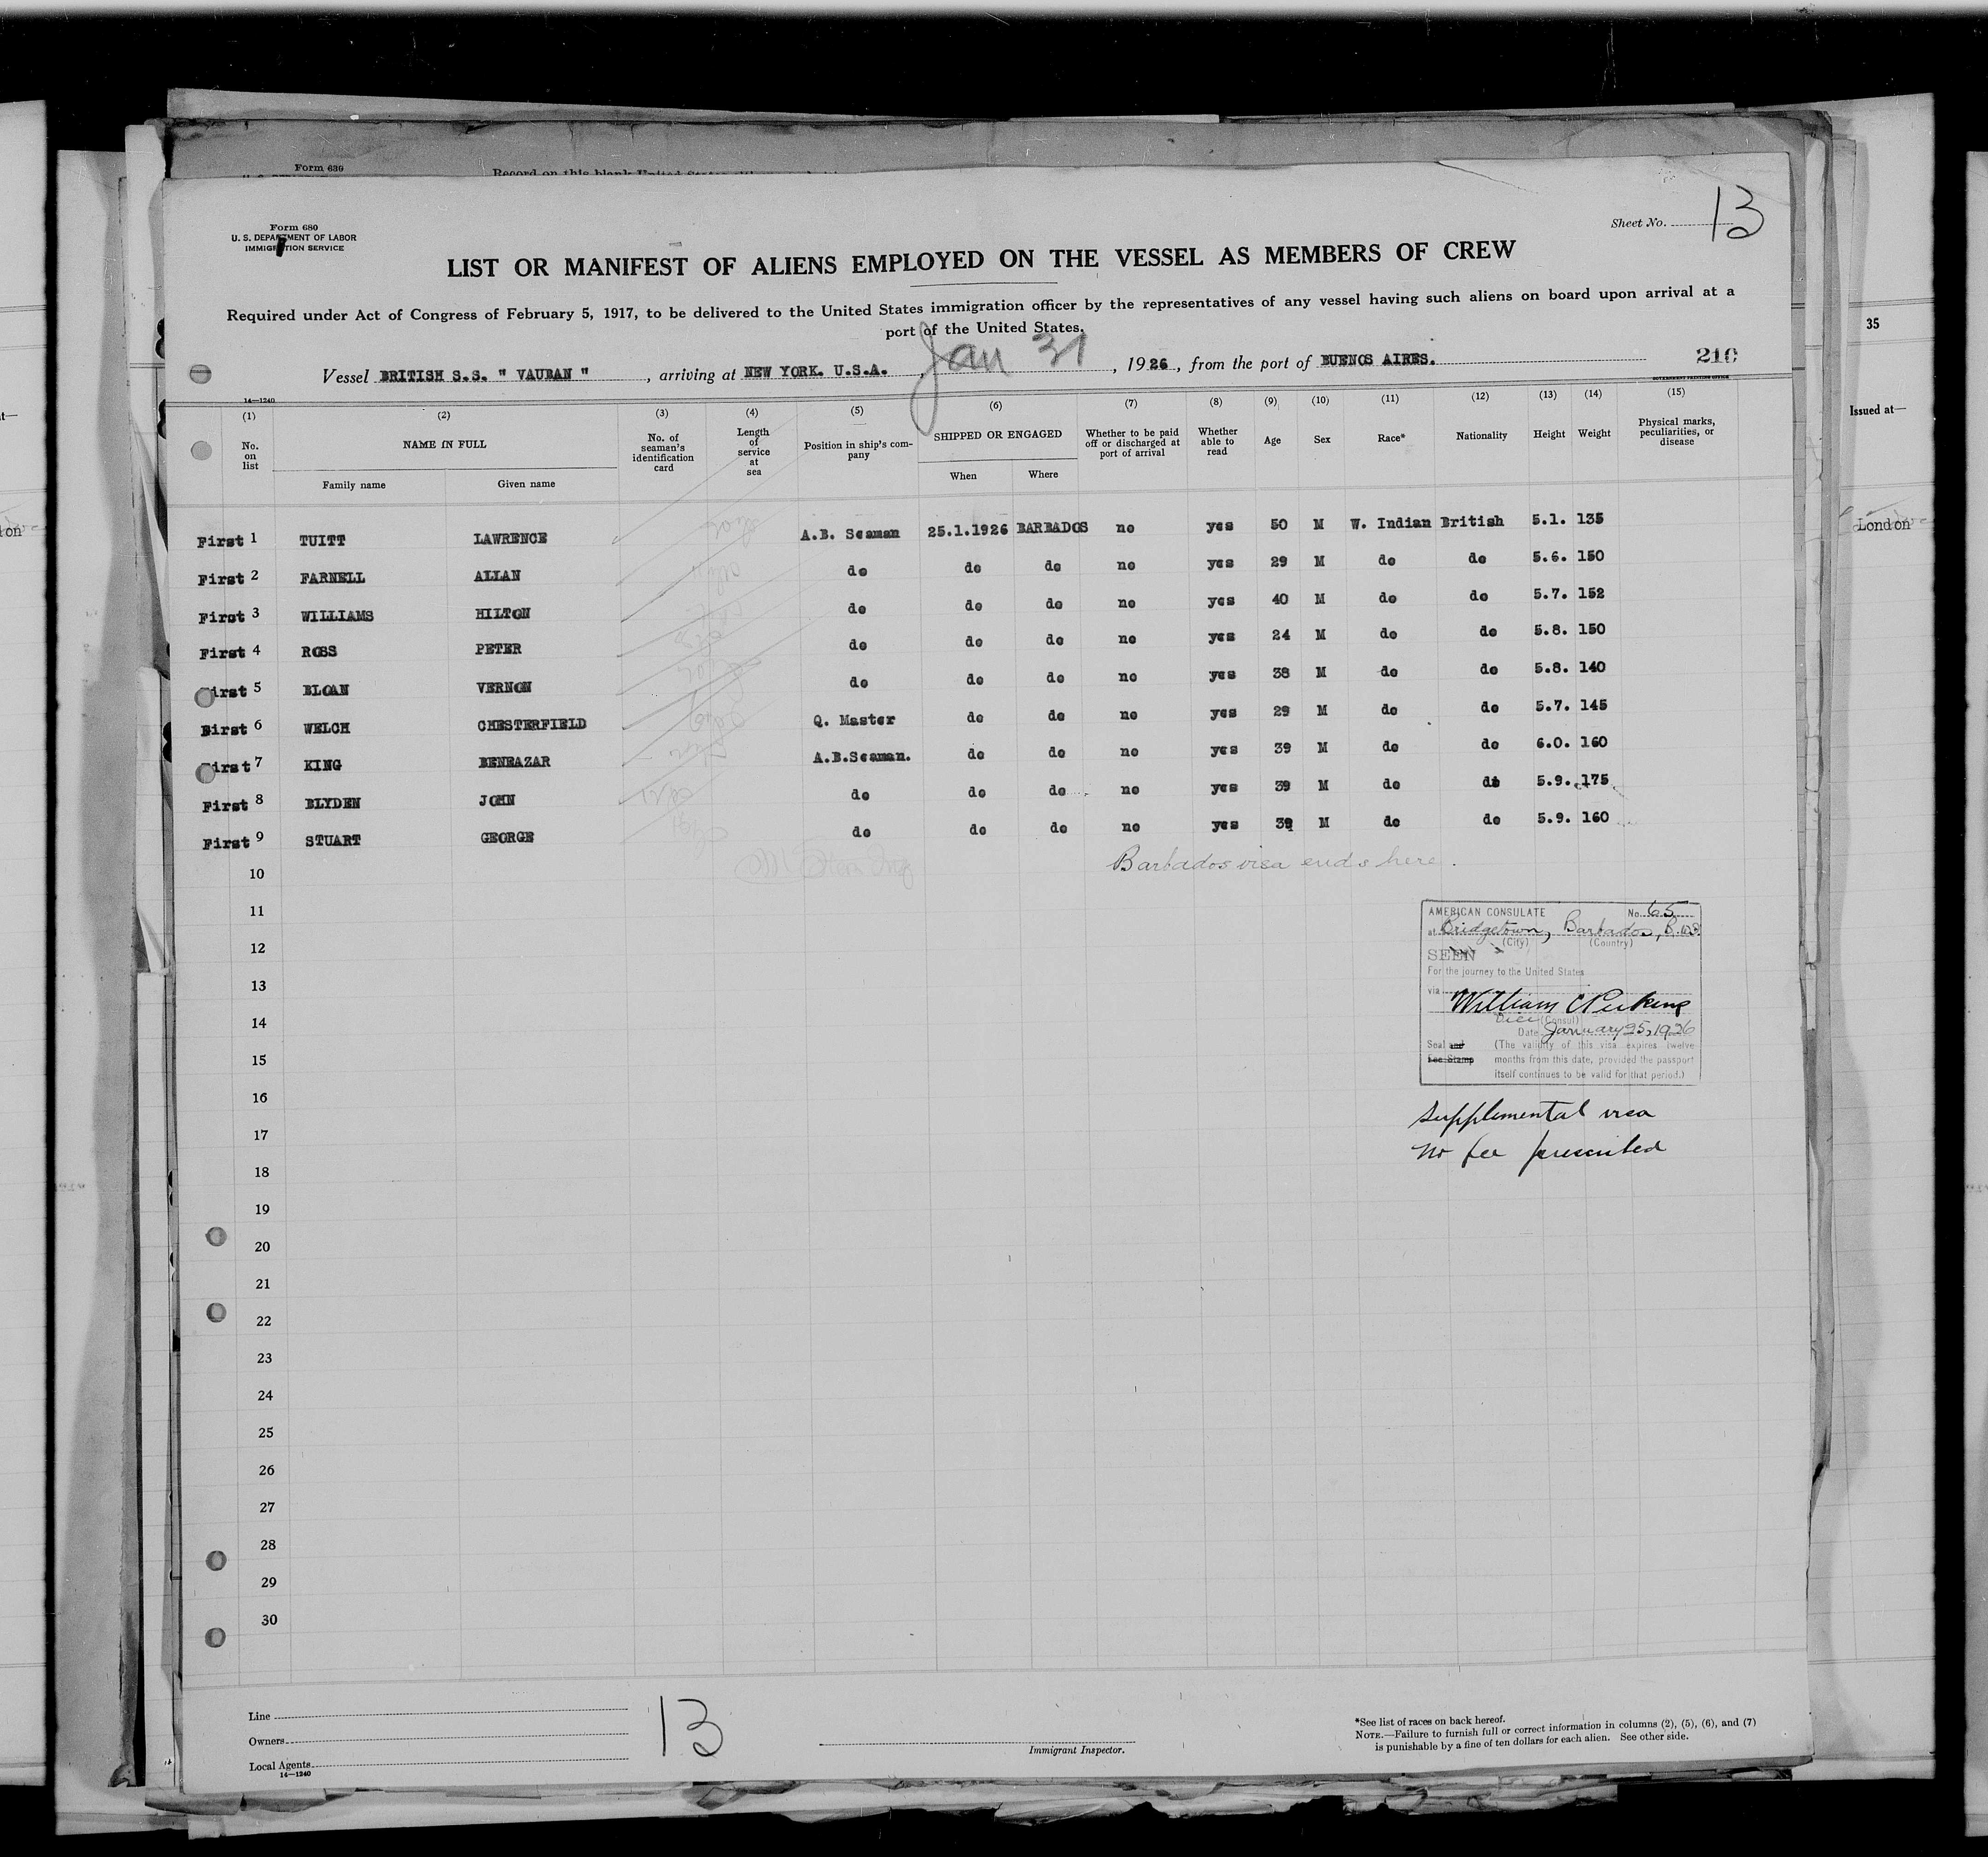 Form 630
Record on this blank United States
Form 680
U. S. DEPARTMENT OF LABOR
IMMIGRATION SERVICE
Sheet No. 13
LIST OR MANIFEST OF ALIENS EMPLOYED ON THE VESSEL AS MEMBERS OF CREW
Required under Act of Congress of February 5, 1917, to be delivered to the United States immigration officer by the representatives of any vessel having such aliens on board upon arrival at a
port of the United States.
Vessel BRITISH S.S. " VAUBAN ", arriving at NEW YORK. U.S.A., Jan 31, 1926, from the port of BUENOS AIRES.
210
GOVERNMENT PRINTING OFFICE
14—1240
(1) (2) (3) (4) (5) (6) (7) (8) (9) (10) (11) (12) (13) (14) (15)
No. on list
NAME IN FULL
Family name
Given name
No. of seaman's identification card
Length of service at sea
Position in ship's company
SHIPPED OR ENGAGED
When
Where
Whether to be paid off or discharged at port of arrival
Whether able to read
Age
Sex
Race*
Nationality
Height
Weight
Physical marks, peculiarities, or disease
First 1 TUITT LAWRENCE A.B. Seaman 25.1.1926 BARBADOS no yes 50 M W. Indian British 5.1. 135
First 2 FARNELL ALLAN do do do no yes 29 M do do 5.6. 150
First 3 WILLIAMS HILTON do do do no yes 40 M do do 5.7. 152
First 4 ROSS PETER do do do no yes 24 M do do 5.8. 150
First 5 BLOAN VERNON do do do no yes 38 M do do 5.8. 140
First 6 WELCH CHESTERFIELD Q. Master do do no yes 29 M do do 5.7. 145
First 7 KING BENEAZAR A.B.Seaman. do do no yes 39 M do do 6.0. 160
First 8 BLYDEN JOHN do do do no yes 39 M do do 5.9. 175
First 9 STUART GEORGE do do do no yes 39 M do do 5.9. 160
10 Barbados visa ends here.
11
12
13
14
15
16
17
18
19
20
21
22
23
24
25
26
27
28
29
30
AMERICAN CONSULATE No. 65
at Bridgetown, Barbados, B.W.I.
(City) (Country)
SEEN
For the journey to the United States
via
William C Perkins
Vice (Consul)
Date January 25, 1926
Seal and (The validity of this visa expires twelve
Fee Stamp months from this date, provided the passport
itself continues to be valid for that period.)
Supplemental visa
no fee prescribed
Line
Owners
Local Agents
14—1240
13
Immigrant Inspector.
*See list of races on back hereof.
NOTE.—Failure to furnish full or correct information in columns (2), (5), (6), and (7)
is punishable by a fine of ten dollars for each alien. See other side.
35
Issued at—
London